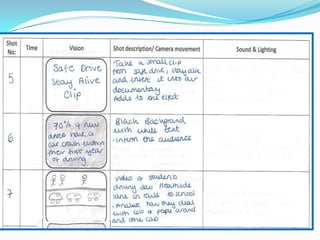 Shot No:
Time
Vision
Shot description/ Camera movement
Sound & Lighting
5
Safe Drive
Stay Alive
Clip
Take a small clip
from safe drive, stay alive
and insert it into our
documentary
Adds to the effect
6
70% of new
drives have a
car crash within
their first year
of driving
Black Background
with white text
- inform the audience
7
Video of students
driving down
lane in route to school
- Analyse how they deal
with lots of people around
and one